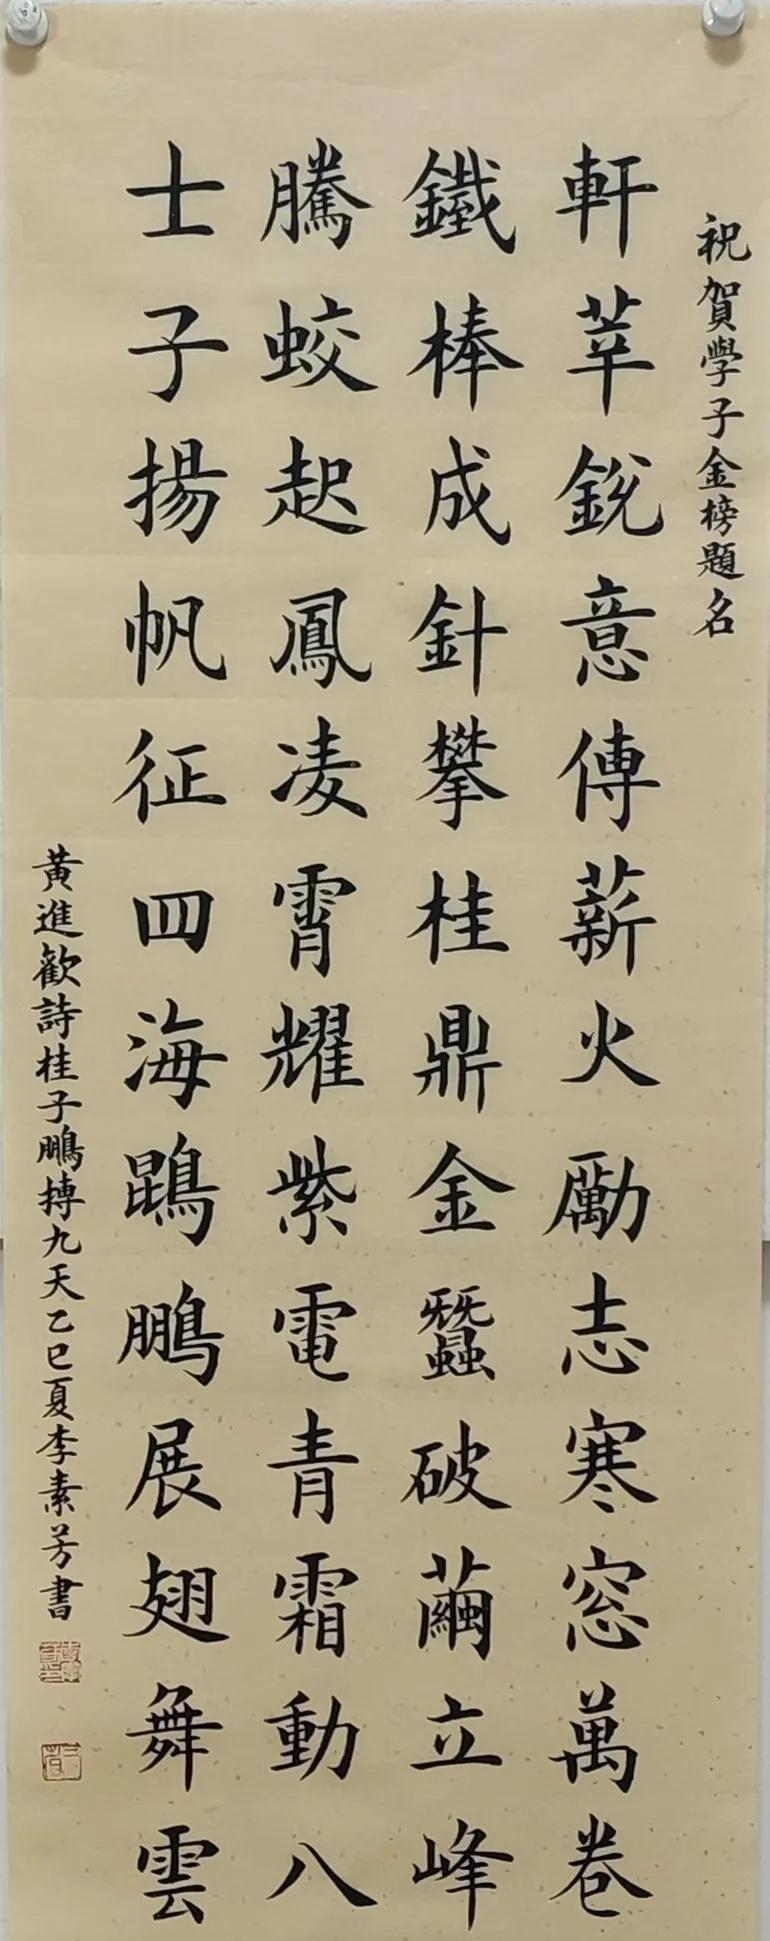 祝賀學子金榜題名
軒莘銳意傳薪火勵志寒窓萬卷
鐵棒成針攀桂鼎金蠶破繭立峰
騰蛟起鳳凌霄耀紫電青霜動八
士子揚帆征四海鵾鵬展翅舞雲
黃進歡詩桂子鵬搏九天乙巳夏李素芳書